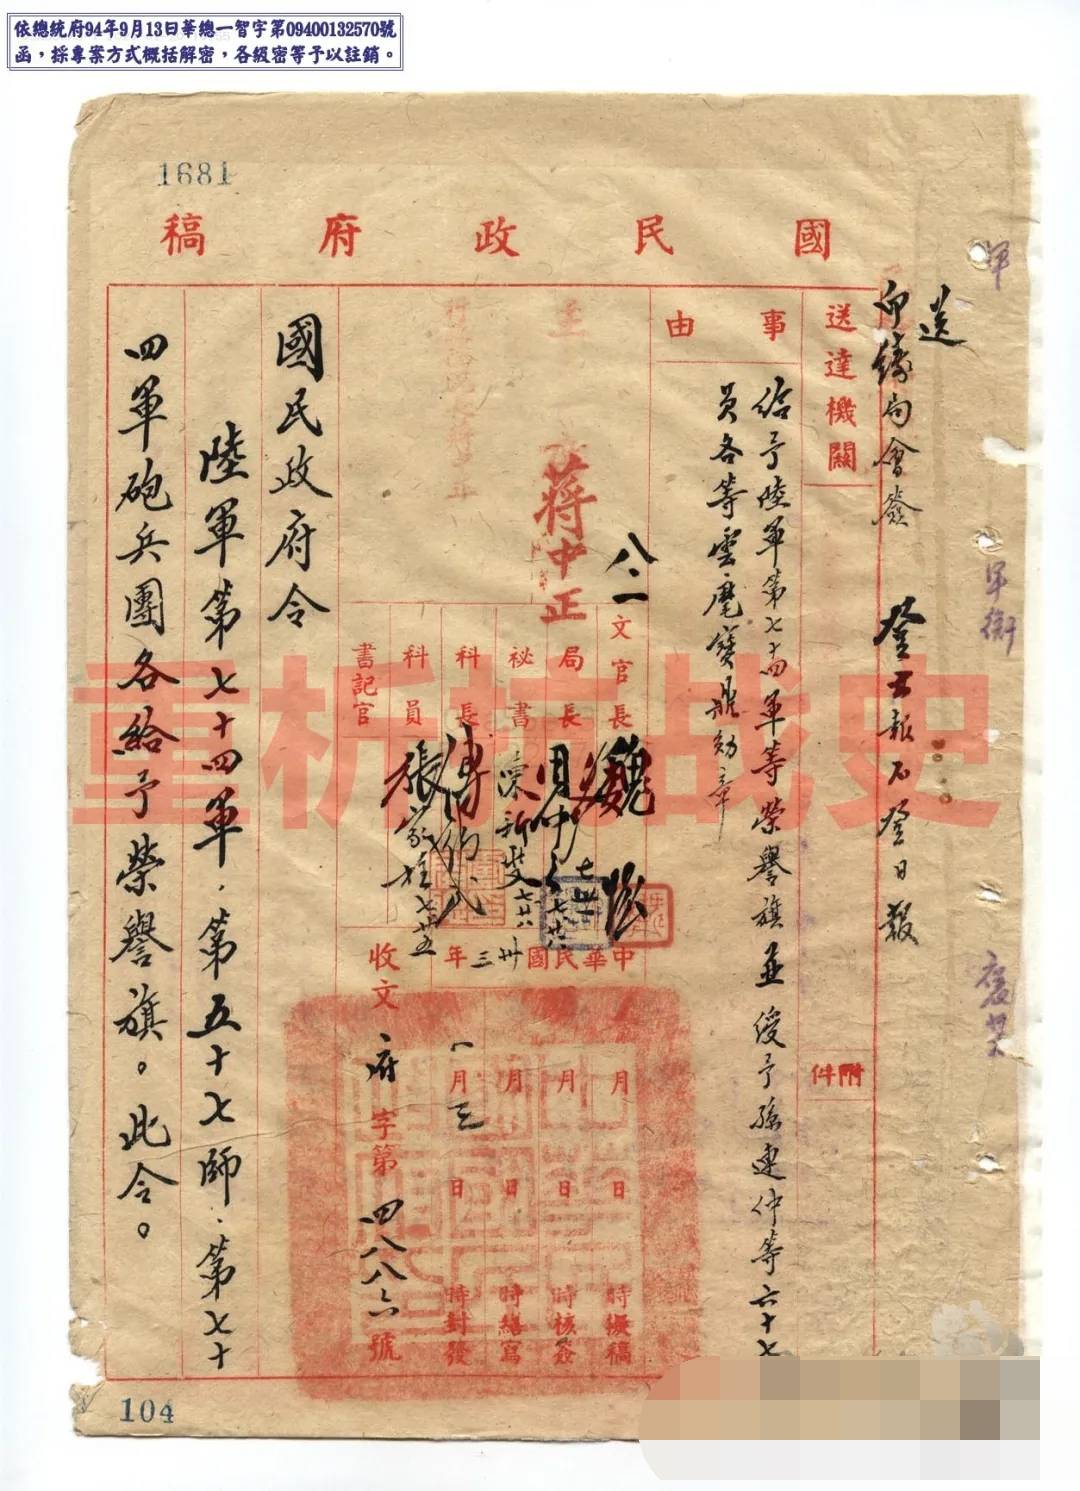 依總統府94年9月13日華總一智字第09400132570號
函，採專案方式概括解密，各級密等予以註銷。
1681
國民政府稿
軍
軍衡
褒獎
送
印鑄局會簽 登公報不登日報
送達機關
附件
事由
給予陸軍第七十四軍等榮譽旗並授予孫連仲等六十七
員各等雲麾寶鼎勛章
八.二
蔣中正
文官長 魏懷
局長
祕書
科長
科員
書記官
中華民國卅三年
月 日 時擬稿
月 日 時核簽
月 日 時繕寫
八月三日 時封發
收文 府字第四八八六號
國民政府令
陸軍第七十四軍.第五十七師.第七十
四軍砲兵團各給予榮譽旗。此令。
重析抗战史
104